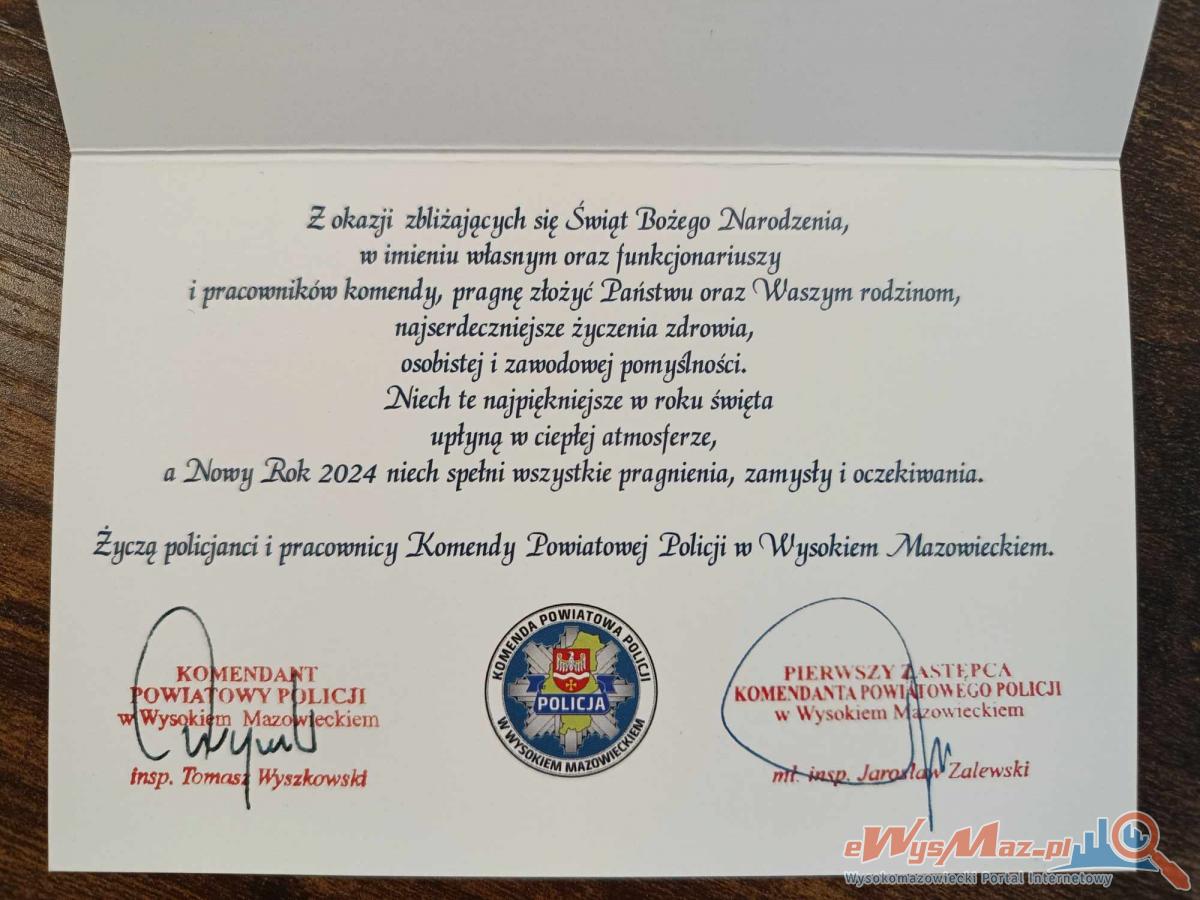 Z okazji zbliżających się Świąt Bożego Narodzenia,
w imieniu własnym oraz funkcjonariuszy
i pracowników komendy, pragnę złożyć Państwu oraz Waszym rodzinom,
najserdeczniejsze życzenia zdrowia,
osobistej i zawodowej pomyślności.
Niech te najpiękniejsze w roku święta
upłyną w ciepłej atmosferze,
a Nowy Rok 2024 niech spełni wszystkie pragnienia, zamysły i oczekiwania.
Życzą policjanci i pracownicy Komendy Powiatowej Policji w Wysokiem Mazowieckiem.
KOMENDANT
POWIATOWY POLICJI
w Wysokiem Mazowieckiem
insp. Tomasz Wyszkowski
KOMENDA POWIATOWA POLICJI
POLICJA
W WYSOKIEM MAZOWIECKIEM
PIERWSZY ZASTĘPCA
KOMENDANTA POWIATOWEGO POLICJI
w Wysokiem Mazowieckiem
mł. insp. Jarosław Zalewski
eWysMaz.pl
Wysokomazowiecki Portal Internetowy